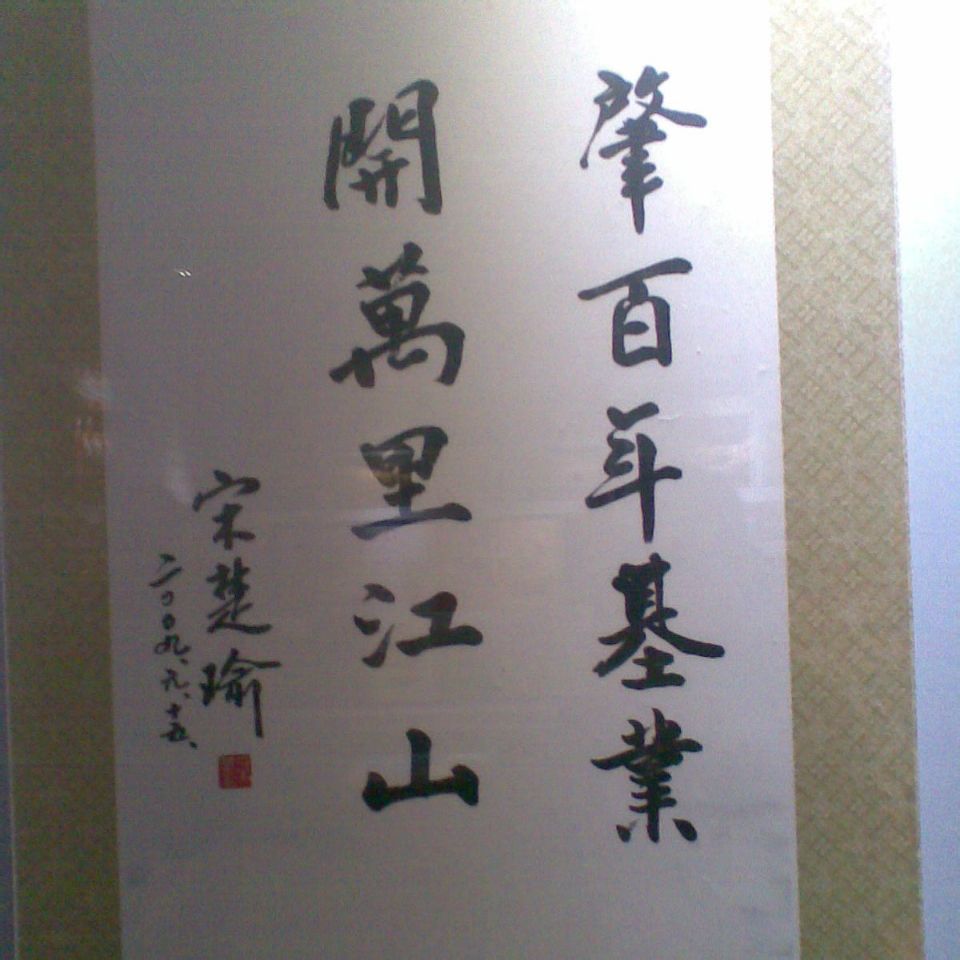 肇百年基業
開萬里江山
宋楚瑜
二〇〇九、九、十五、